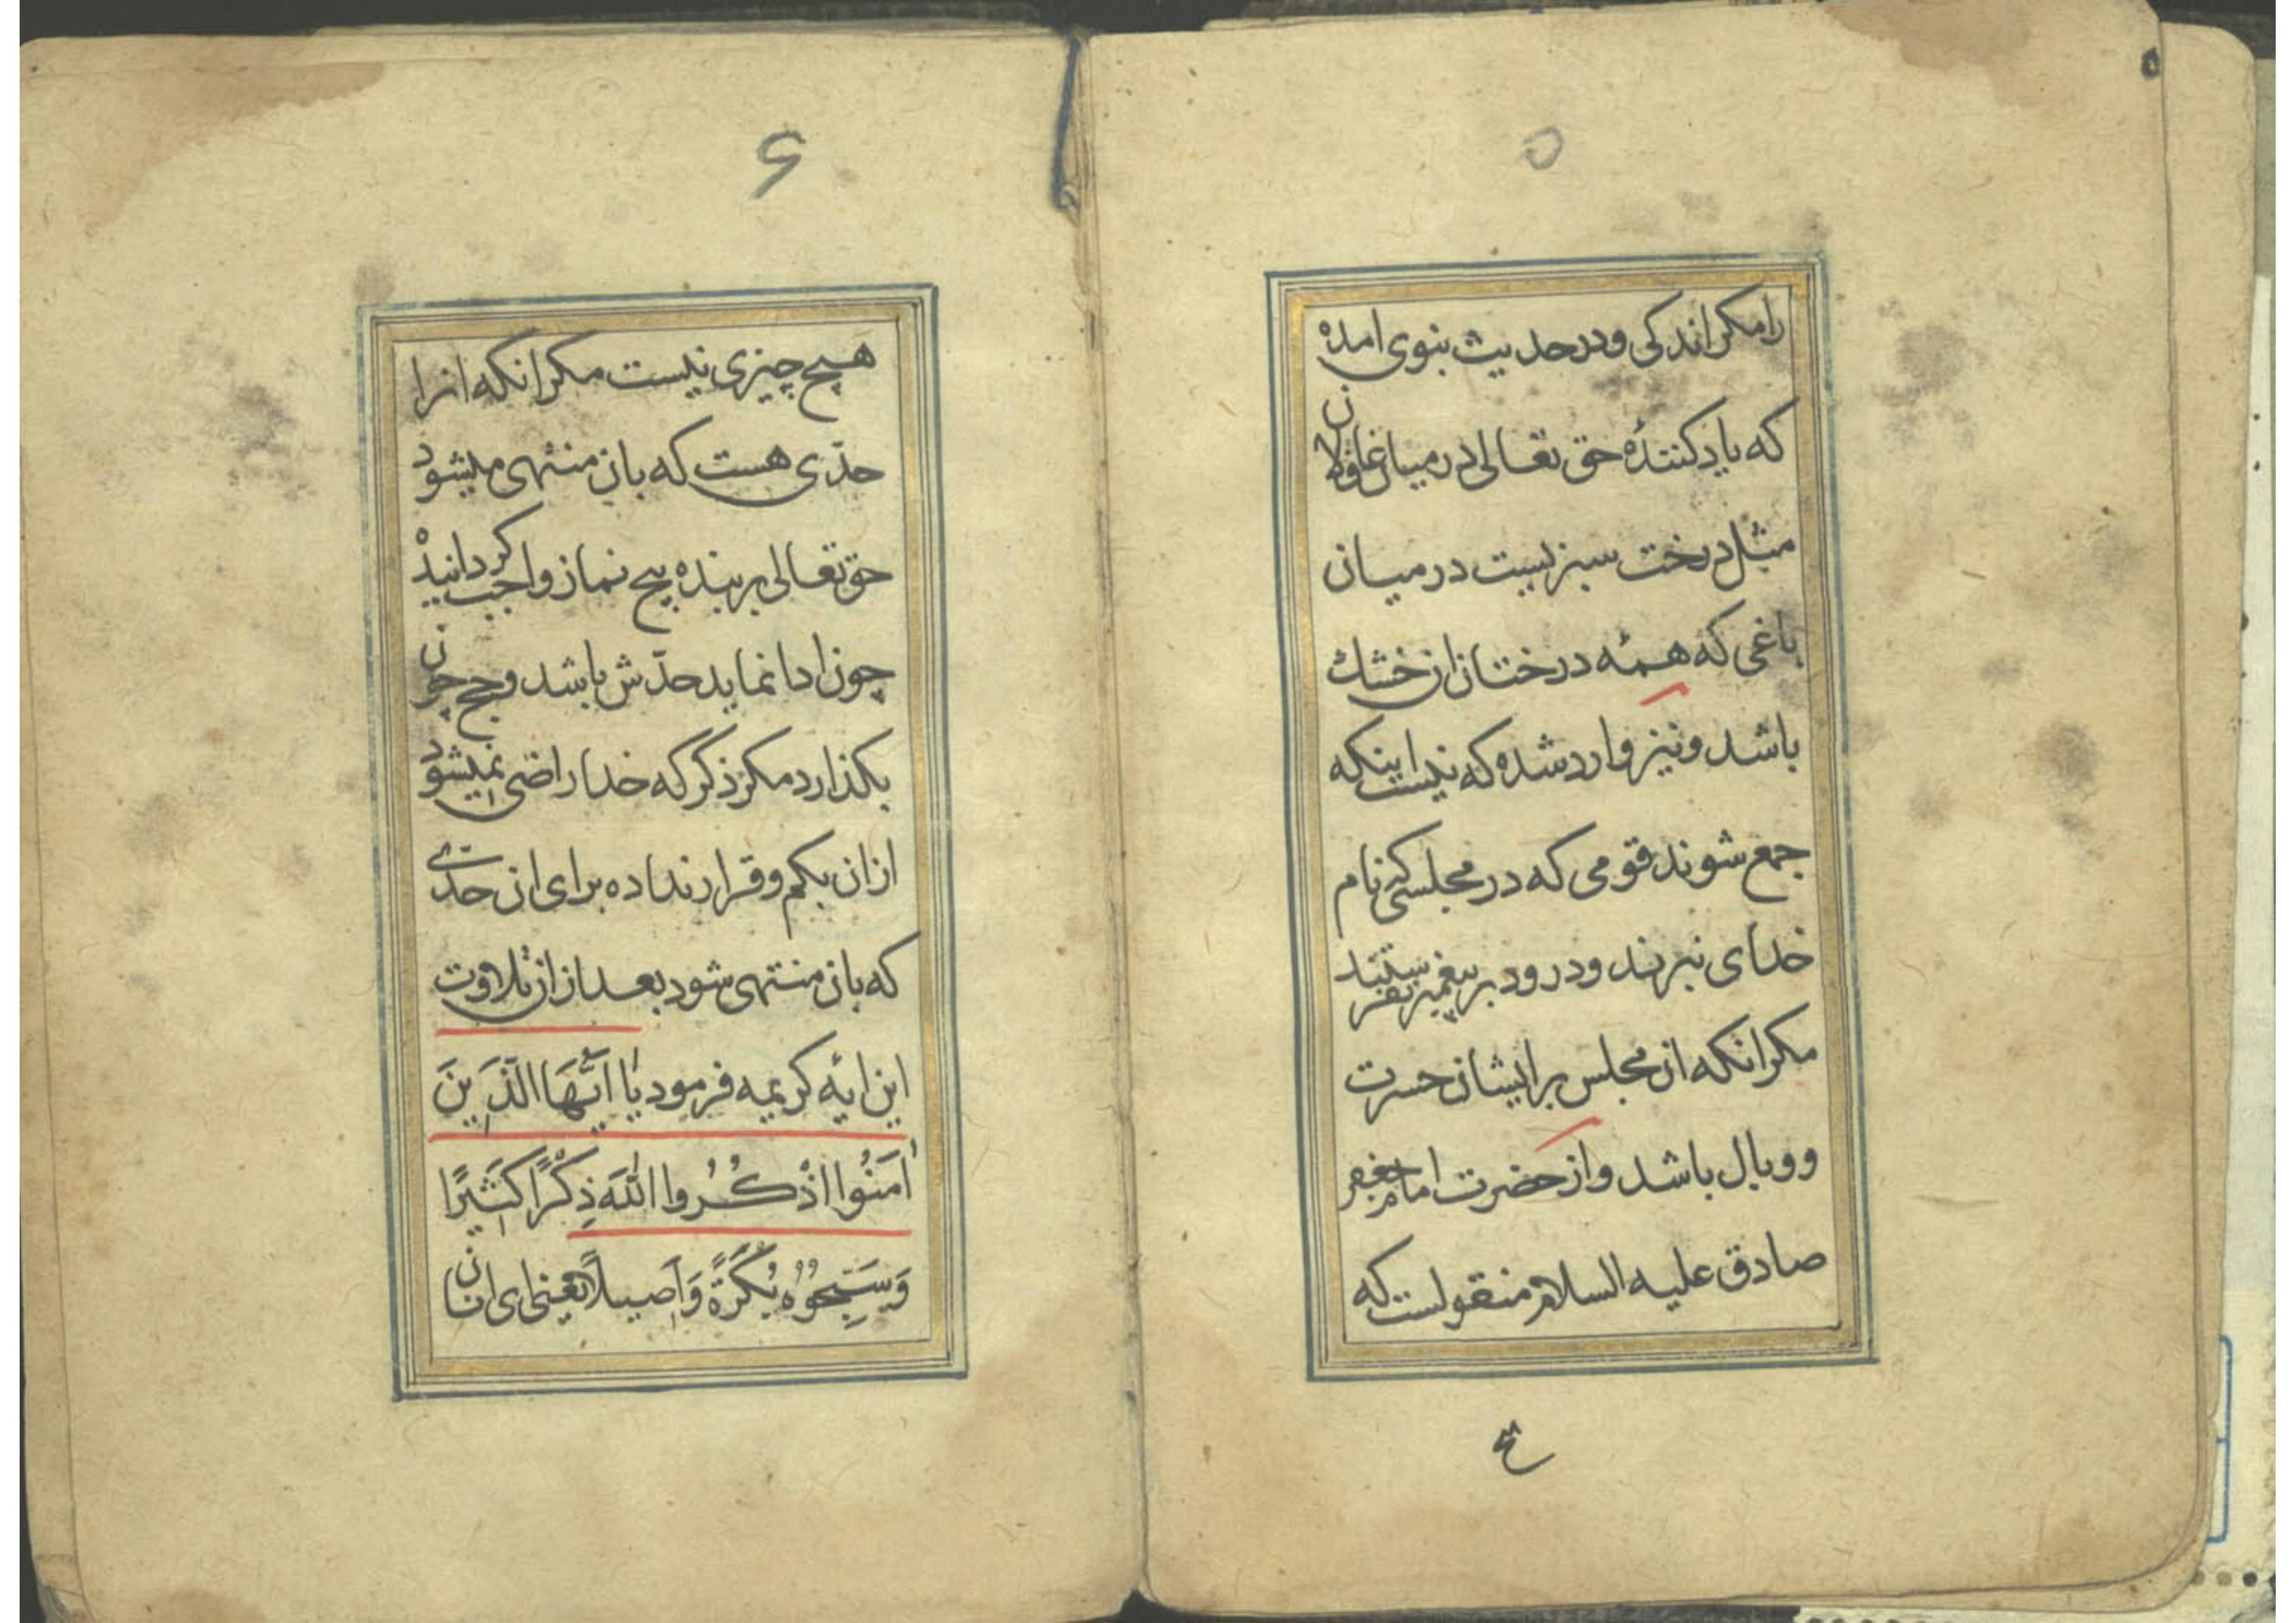 ۵
رامکر اندکی ودر حدیث بنوی امده
که یاد کنندهٔ حق تعالی در میان غافلان
مثل درخت سبزیست در میان
باغی که همهٔ درختان ان خشك
باشد ونیز وارد شده که نیست اینکه
جمع شوند قومی که در مجلسی که نام
خدای نبرند ودرود بر پیغمبر نفرستند
مکر انکه ان مجلس بر ایشان حسرت
ووبال باشد واز حضرت امام جعفر
صادق علیه السلام منقولست که
۶
هیچ چیزی نیست مکر انکه انرا
حدّی هست که بان منتهی میشود
حق تعالی بر بنده پنج نماز واجب کردانید
چون ادا نماید حدّش باشد وحج چون
بکذارد مکر ذکر که خدا راضی نمیشود
از ان بکم وقرار نداده برای ان حدّی
که بان منتهی شود بعد از ان تلاوت
این ایهٔ کریمه فرمود یٰا اَیُّهَا الَّذِینَ
اٰمَنُوا اذْکُرُوا اللّٰهَ ذِکْرًا کَثِیرًا
وَسَبِّحُوهُ بُکْرَةً وَاَصِیلًا یعنی ای انان